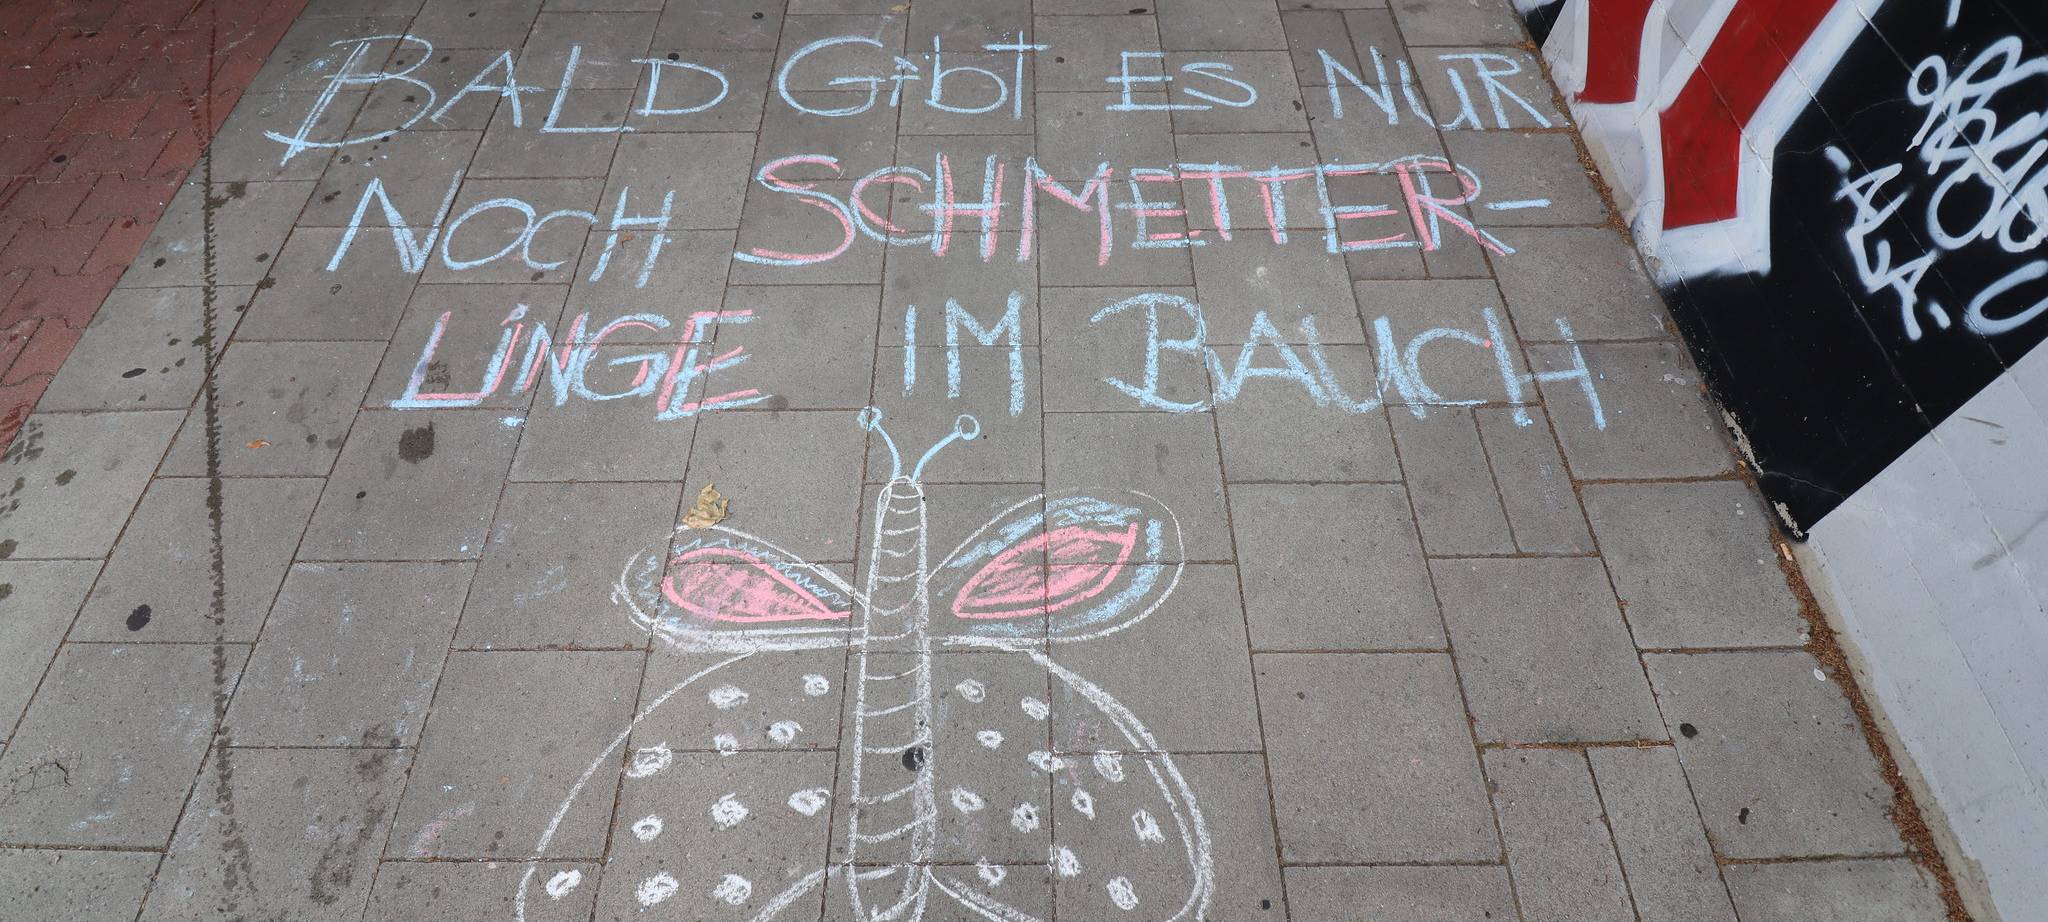 BALD GIBT ES NUR
NOCH SCHMETTER-
LINGE IM BAUCH